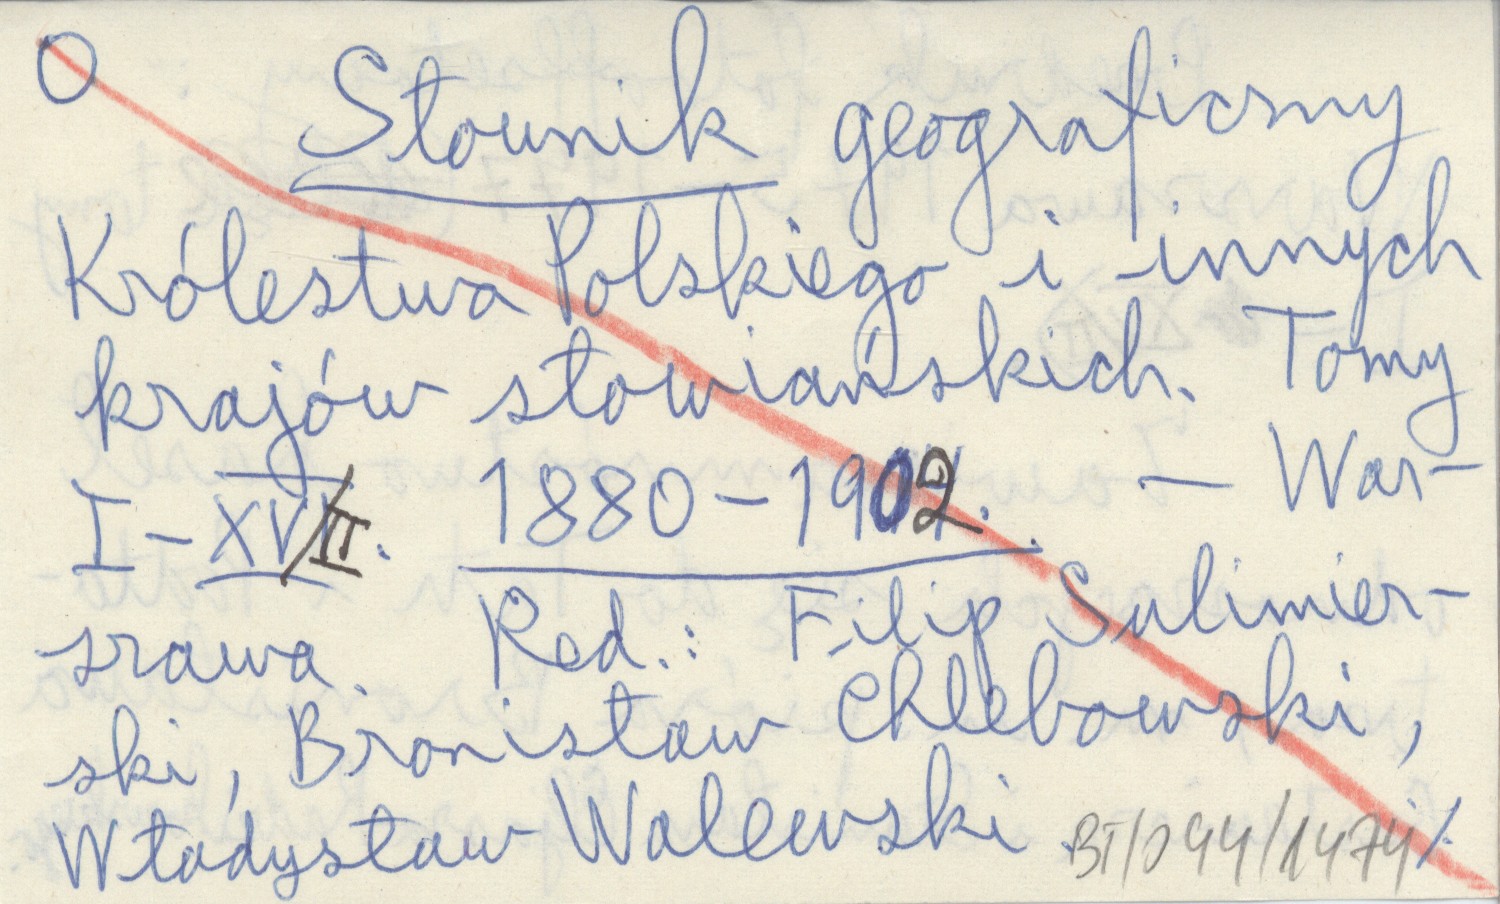 O Słownik geograficzny
Królestwa Polskiego i innych
krajów słowiańskich. Tomy
I – XV/II. 1880 – 1902. — War-
szawa. Red.: Filip Sulimier-
ski, Bronisław Chlebowski,
Władysław Walewski.
BT/044/1474/.